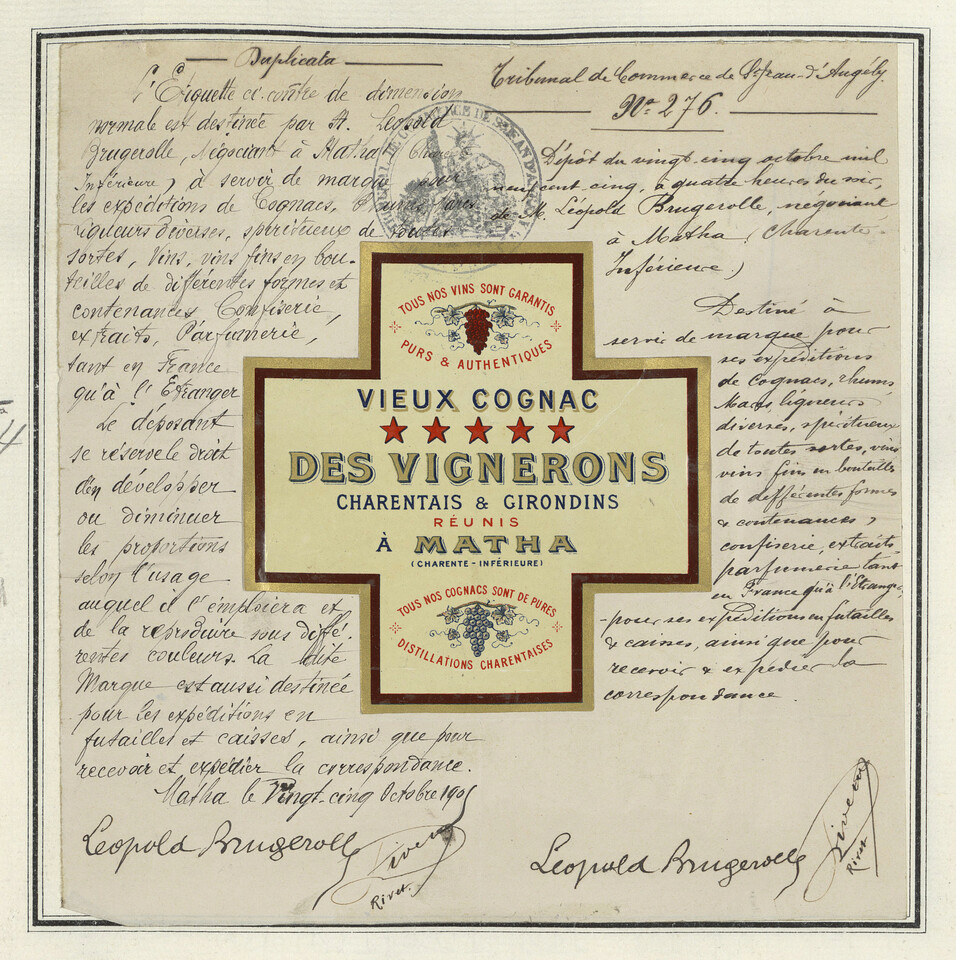 Duplicata
L'Étiquette ci-contre de dimension
normale est destinée par M. Léopold
Brugerolle, Négociant à Matha (Charente
Inférieure) à servir de marque pour
les expéditions de Cognacs, Rhums, Marcs
Liqueurs diverses, spiritueux de toutes
sortes, Vins, vins fins en bou-
teilles de différentes formes et
contenances, Confiserie,
extraits, Parfumerie,
tant en France
qu'à l'Etranger
Le déposant
se réserve le droit
d'en développer
ou diminuer
les proportions
selon l'usage
auquel il l'emploiera et
de la reproduire sous diffé-
rentes couleurs. La dite
Marque est aussi destinée
pour les expéditions en
futailles et caisses, ainsi que pour
recevoir et expédier la correspondance.
Matha le Vingt-cinq Octobre 1905
Leopold Brugerolle
Rivet
Rivet.
Tribunal de Commerce de St Jean-d'Angély.
No. 276.
Dépôt du vingt-cinq octobre mil
neuf cent cinq, à quatre heures du soir,
de M. Léopold Brugerolle, négociant
à Matha (Charente-
Inférieure)
Destiné à
servir de marque pour
ses expéditions
de cognacs, rhums
Marcs, liqueurs
diverses, spiritueux
de toutes sortes, vins
vins fins en bouteilles
de différentes formes
& contenances,
confiserie, extraits,
parfumerie tant
en France qu'à l'étranger,
pour ses expéditions en futailles
& caisses, ainsi que pour
recevoir & expédier la
correspondance.
Leopold Brugerolle
Rivet
Rivet
TOUS NOS VINS SONT GARANTIS
PURS & AUTHENTIQUES
VIEUX COGNAC
DES VIGNERONS
CHARENTAIS & GIRONDINS
RÉUNIS
À MATHA
(CHARENTE-INFÉRIEURE)
TOUS NOS COGNACS SONT DE PURES
DISTILLATIONS CHARENTAISES